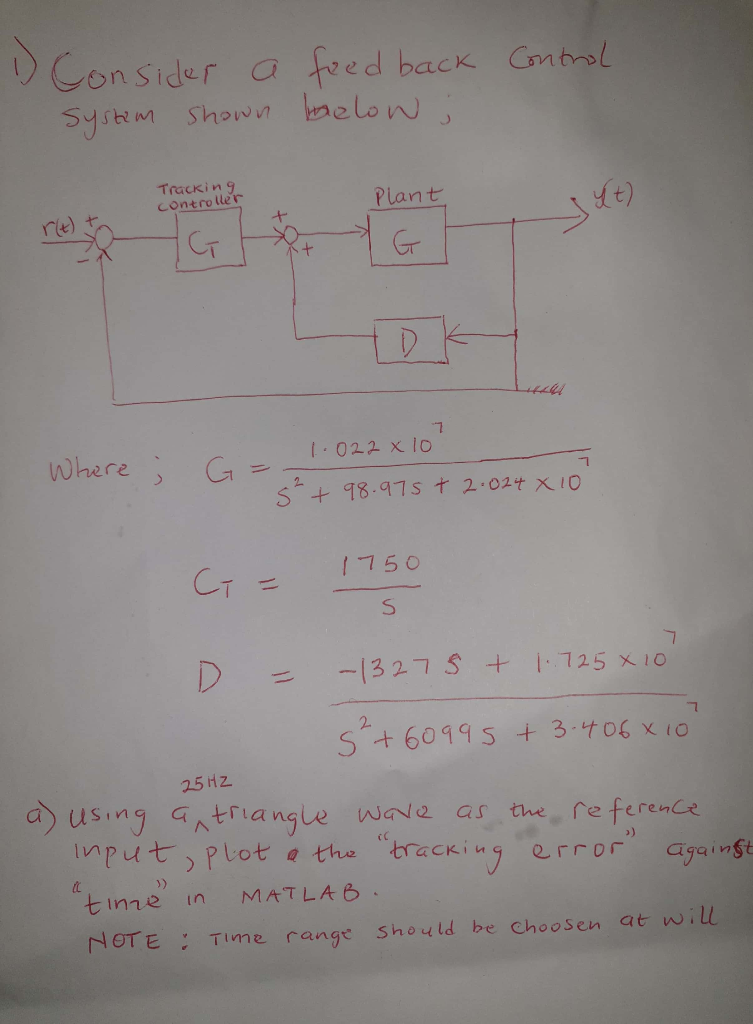 1) Consider a feedback Control
System shown below ;
Tracking
controller
Plant
y(t)
r(t) +
CT
+
G
-
+
D
Where ; G = 1.022 x 10^7
S^2 + 98.97S + 2.024 x 10^7
CT = 1750
S
D = -1327S + 1.725 x 10^7
S^2 + 6099S + 3.406 x 10^7
25HZ
a) using a ^ triangle wave as the reference
input, plot the "tracking error" against
"time" in MATLAB.
NOTE : Time range should be choosen at will